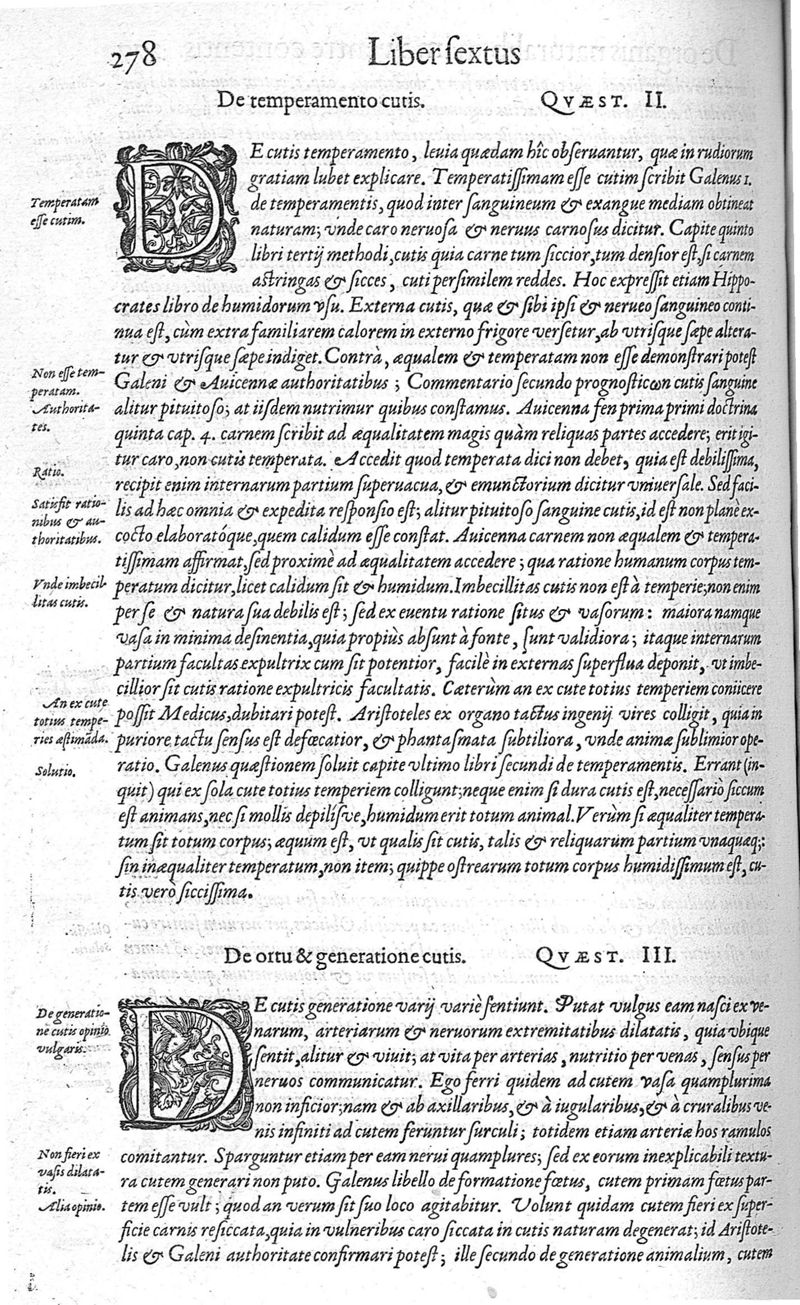 278 Liber sextus
De temperamento cutis. QVÆST. II.
DE cutis temperamento, leuia quædam hîc obseruantur, quæ in rudiorum
gratiam lubet explicare. Temperatissimam esse cutim scribit Galenus 1.
Temperatam
esse cutim.
de temperamentis, quod inter sanguineum & exangue mediam obtineat
naturam; vnde caro neruosa & neruus carnosus dicitur. Capite quinto
libri tertij methodi, cutis quia carne tum siccior, tum densior est, si carnem
astringas & sicces, cuti persimilem reddes. Hoc expressit etiam Hippo-
crates libro de humidorum vsu. Externa cutis, quæ & sibi ipsi & nerueo sanguineo conti-
nua est, cùm extra familiarem calorem in externo frigore versetur, ab vtrisque sæpe altera-
tur & vtrisque sæpe indiget. Contrà, æqualem & temperatam non esse demonstrari potest
Non esse tem-
peratam.
Authorita-
tes.
Galeni & Auicennæ authoritatibus; Commentario secundo prognosticων cutis sanguine
alitur pituitoso; at iisdem nutrimur quibus constamus. Auicenna fen prima primi doctrina
quinta cap. 4. carnem scribit ad æqualitatem magis quàm reliquas partes accedere; erit igi-
tur caro, non cutis temperata. Accedit quod temperata dici non debet, quia est debilissima,
Ratio.
recipit enim internarum partium superuacua, & emunctorium dicitur vniuersale. Sed faci-
Satisfit ratio-
nibus & au-
thoritatibus.
lis ad hæc omnia & expedita responsio est; alitur pituitoso sanguine cutis, id est non planè ex-
cocto elaboratóque, quem calidum esse constat. Auicenna carnem non æqualem & tempera-
tissimam affirmat, sed proximè ad æqualitatem accedere; qua ratione humanum corpus tem-
Vnde imbecil-
litas cutis.
peratum dicitur, licet calidum sit & humidum. Imbecillitas cutis non est à temperie; non enim
per se & natura sua debilis est; sed ex euentu ratione situs & vasorum: maiora namque
vasa in minima desinentia, quia propiùs absunt à fonte, sunt validiora; itaque internarum
partium facultas expultrix cum sit potentior, facilè in externas superflua deponit, vt imbe-
cillior sit cutis ratione expultricis facultatis. Cæterùm an ex cute totius temperiem coniicere
An ex cute
totius tempe-
ries æstimāda.
possit Medicus, dubitari potest. Aristoteles ex organo tactus ingenij vires colligit, quia in
puriore tactu sensus est defœcatior, & phantasmata subtiliora, vnde animæ sublimior ope-
Solutio.
ratio. Galenus quæstionem soluit capite vltimo libri secundi de temperamentis. Errant (in-
quit) qui ex sola cute totius temperiem colligunt; neque enim si dura cutis est, necessariò siccum
est animans, nec si mollis depilisve, humidum erit totum animal. Verùm si æqualiter tempera-
tum sit totum corpus; æquum est, vt qualis sit cutis, talis & reliquarum partium vnaquæq;:
sin inæqualiter temperatum, non item; quippe ostrearum totum corpus humidissimum est, cu-
tis verò siccissima.
De ortu & generatione cutis. QVÆST. III.
De generatio-
ne cutis opinio
vulgaris.
DE cutis generatione varij variè sentiunt. Putat vulgus eam nasci ex ve-
narum, arteriarum & neruorum extremitatibus dilatatis, quia vbique
sentit, alitur & viuit; at vita per arterias, nutritio per venas, sensus per
neruos communicatur. Ego ferri quidem ad cutem vasa quamplurima
non inficior; nam & ab axillaribus, & à iugularibus, & à cruralibus ve-
nis infiniti ad cutem feruntur surculi; totidem etiam arteriæ hos ramulos
Non fieri ex
vasis dilata-
tis.
Alia opinio.
comitantur. Sparguntur etiam per eam nerui quamplures; sed ex eorum inexplicabili textu-
ra cutem generari non puto. Galenus libello de formatione fœtus, cutem primam fœtus par-
tem esse vult; quod an verum sit suo loco agitabitur. Volunt quidam cutem fieri ex super-
ficie carnis resiccata, quia in vulneribus caro siccata in cutis naturam degenerat; id Aristote-
lis & Galeni authoritate confirmari potest; ille secundo de generatione animalium, cutem